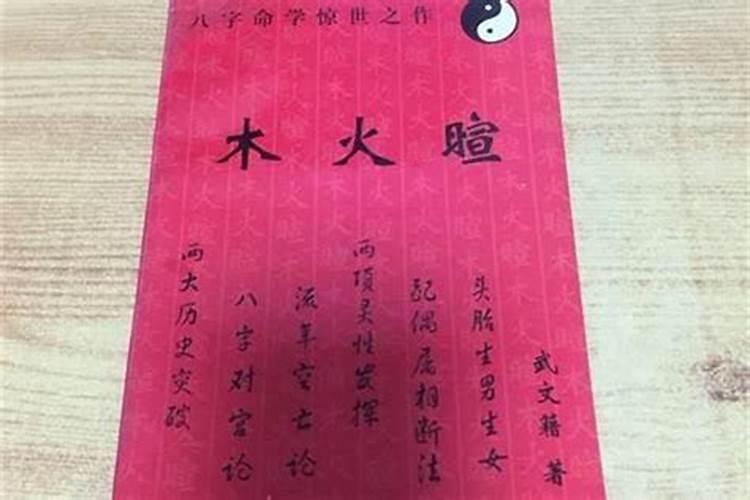 八字命学惊世之作
木火暄
两大历史突破
八字对宫论
流年空亡论
两项灵性发挥
配偶属相断法
头胎生男生女
武文籍 著